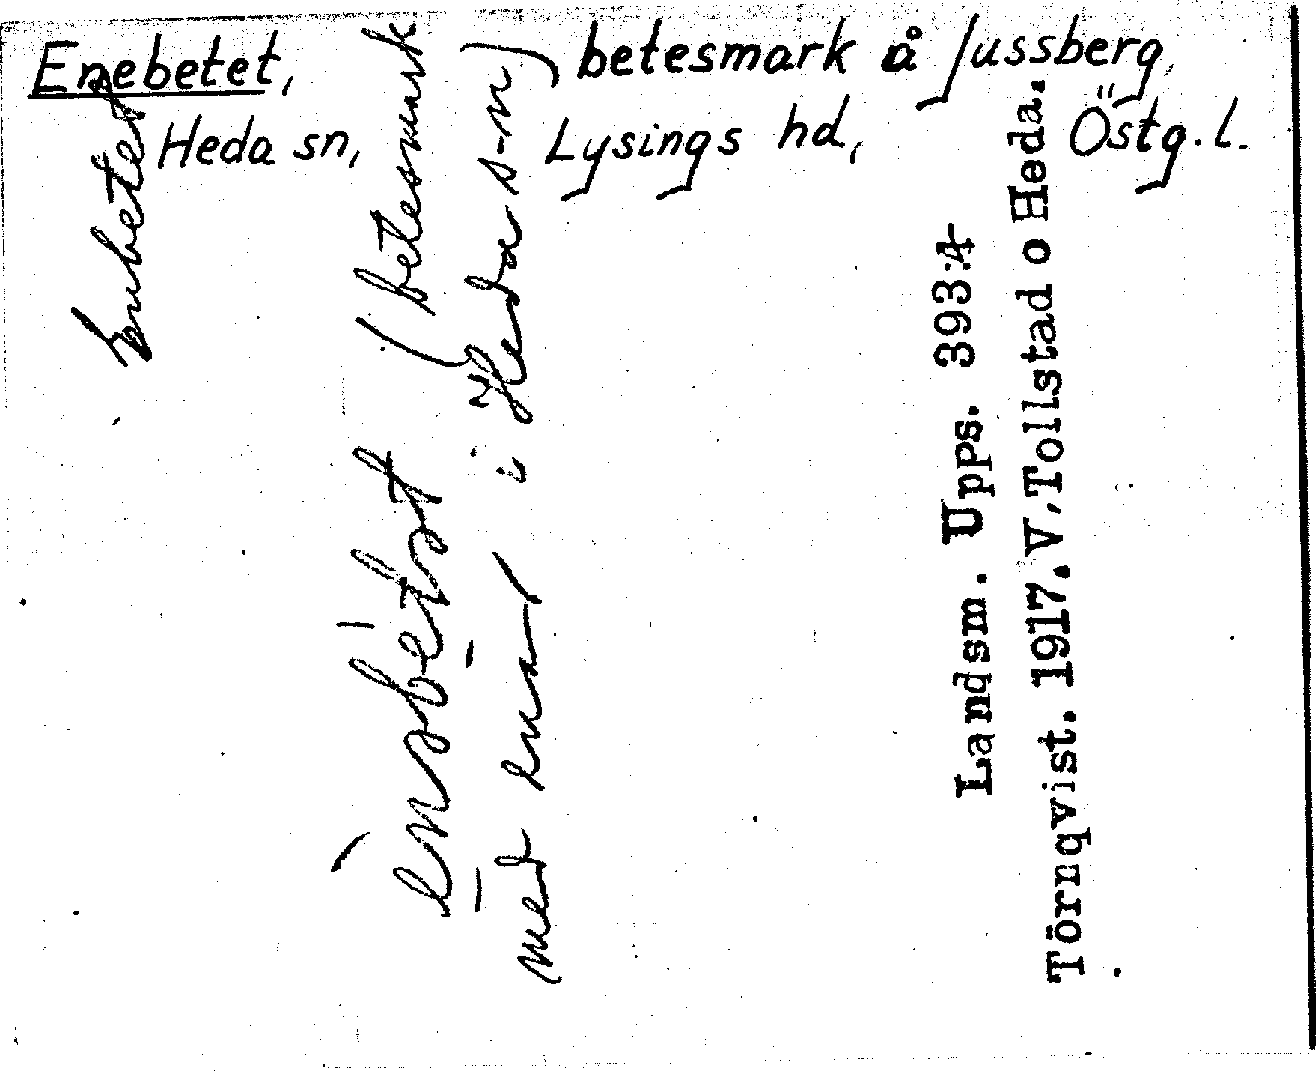 Enebetet, betesmark å Jussberg,
Heda sn, Lysings hd, Östg. l.
Enebetet
(betesmark
med enar i Heda s-n)
Landsm. Upps. 393:4
Törnqvist. 1917. V. Tollstad o Heda.